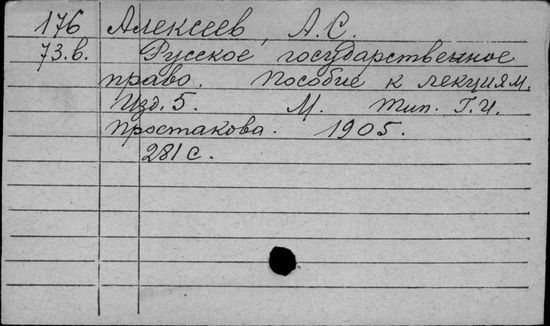 176 Алексеев, А.С.
73.в. Русское государственное
право. Пособие к лекциям.
Изд. 5. М. Тип. Г.И.
Простакова. 1905.
281 с.